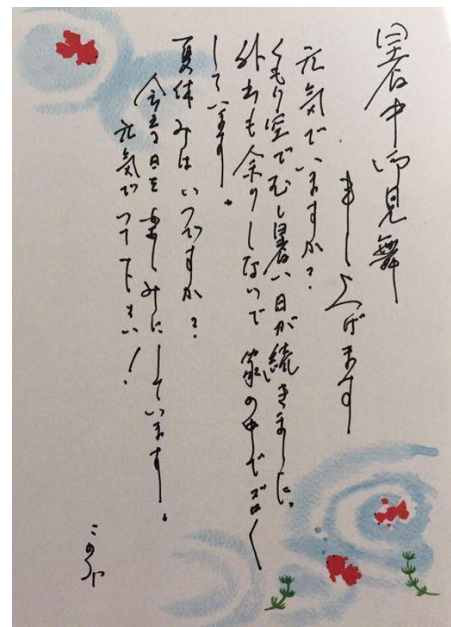 暑中御見舞
申し上げます
元気でいますか?
くもり空でむし暑い日が続きました。
外出も余りしないで家の中でゴロゴロ
しています。
夏休みはいつですか?
会える日を楽しみにしています。
元気でいて下さい!